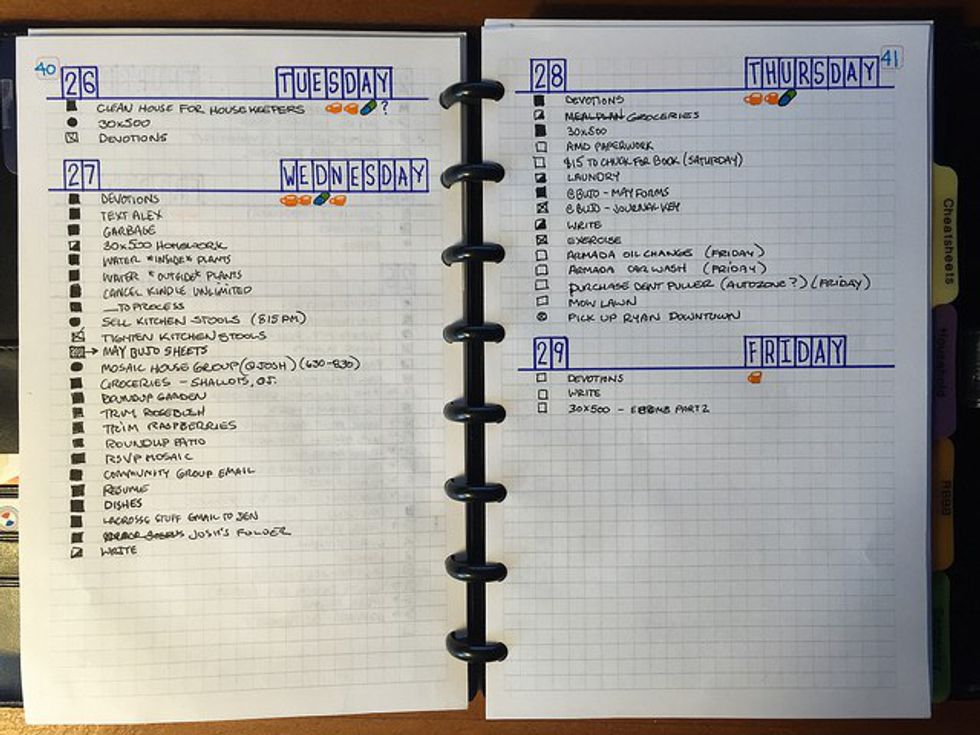 40
26 TUESDAY
CLEAN HOUSE FOR HOUSEKEEPERS ?
30x500
DEVOTIONS
27 WEDNESDAY
DEVOTIONS
TEXT ALEX
GARBAGE
30x500 HOMEWORK
WATER *INSIDE* PLANTS
WATER *OUTSIDE* PLANTS
CANCEL KINDLE UNLIMITED
__TO PROCESS
SELL KITCHEN STOOLS (815PM)
TIGHTEN KITCHEN STOOLS
→ MAY BUJO SHEETS
MOSAIC HOUSE GROUP (@JOSH) (630-830)
GROCERIES - SHALLOTS, OJ.
ROUNDUP GARDEN
TRIM ROSEBUSH
TRIM RASPBERRIES
ROUNDUP PATIO
RSVP MOSAIC
COMMUNITY GROUP EMAIL
RESUME
DISHES
LACROSSE STUFF EMAIL TO JEN
JOSH'S FOLDER
WRITE
41
28 THURSDAY
DEVOTIONS
MEALPLAN GROCERIES
30x500
AMD PAPERWORK
$15 TO CHUCK FOR BOOK (SATURDAY)
LAUNDRY
BUJO - MAY FORMS
BUJO - JOURNAL KEY
WRITE
EXERCISE
ARMADA OIL CHANGE (FRIDAY)
ARMADA CAR WASH (FRIDAY)
PURCHASE DENT PULLER (AUTOZONE?) (FRIDAY)
MOW LAWN
PICK UP RYAN DOWNTOWN
29 FRIDAY
DEVOTIONS
WRITE
30x500 - EBOMB PART 2
Cheatsheets
Household